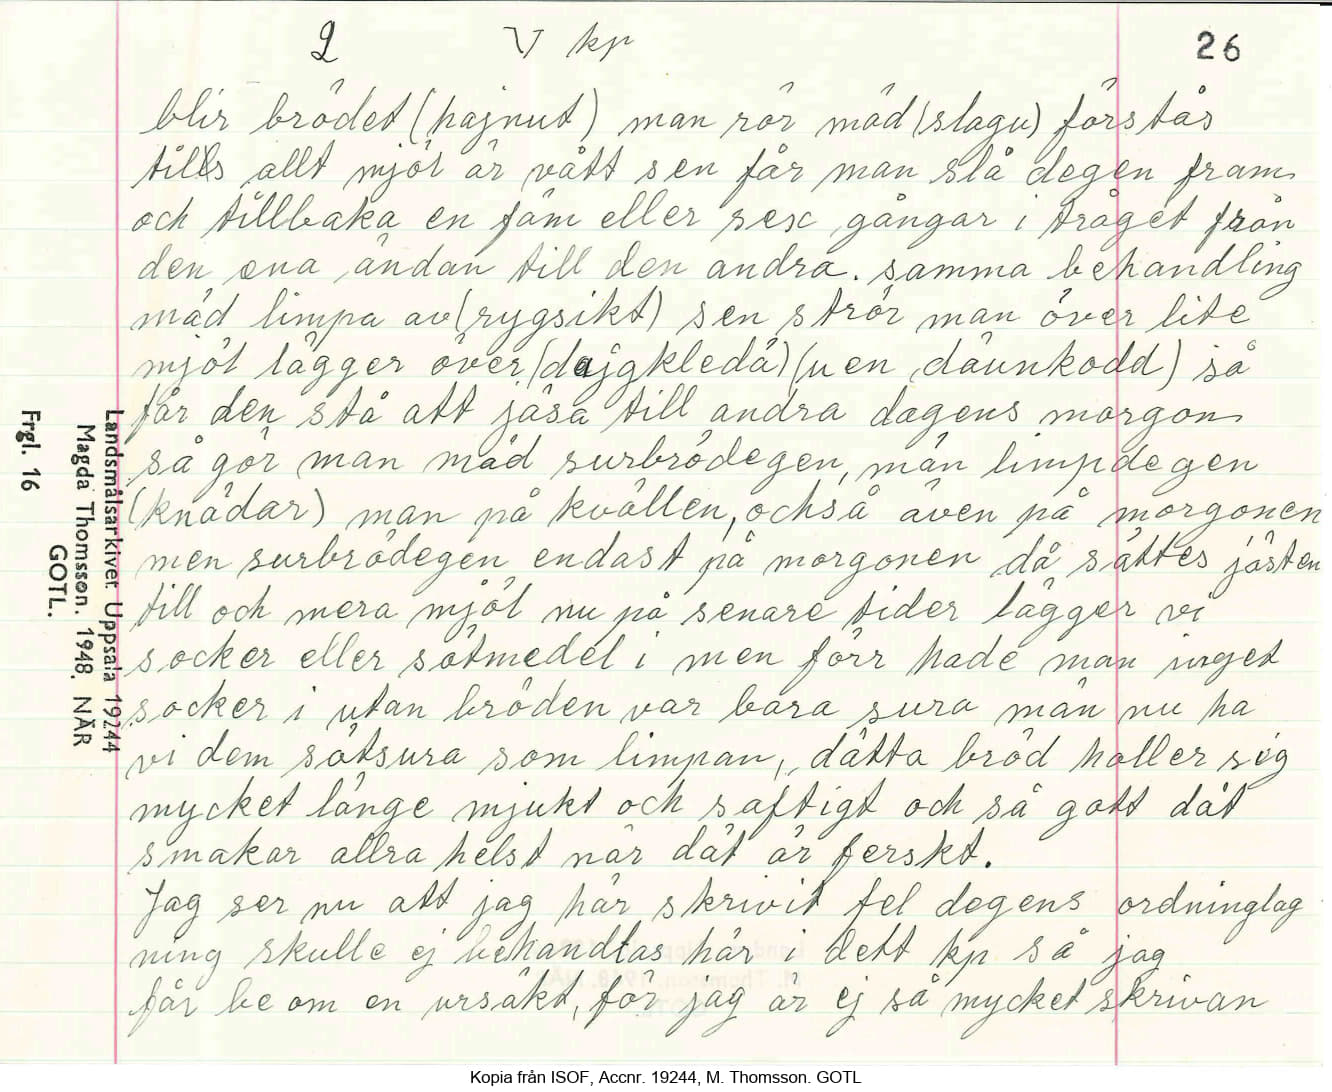 2 V kp 26
blir brödet (hajnut) man rör mäd (slagu) förstås
tills allt mjöl är vått sen får man slå degen fram
och tillbaka en fäm eller sex gångar i tråget från
den ena ändan till den andra. samma behandling
mäd limpa av (rygsikt) sen strör man över lite
mjöl lägger över (dajgkledä) (u en däunkodd) så
får den stå att jäsa till andra dagens morgon
så gör man mäd surbrödegen, män limpdegen
(knådar) man på kvällen, också även på morgonen
men surbrödegen endast på morgonen då sättes jästen
till och mera mjöl nu på senare tider lägger vi
socker eller sötmedel i men förr hade man inget
socker i utan bröden var bara sura män nu ha
vi dem sötsura som limpan, dätta bröd håller sig
mycket länge mjukt och saftigt och så gott dät
smakar allra helst när dät är ferskt.
Jag ser nu att jag här skrivit fel degens ordninglag
ning skulle ej behandlas här i dett kp så jag
får be om en ursäkt, för jag är ej så mycket skrivan
Landsmålsarkivet Uppsala 19244
Magda Thomsson. 1948. NÄR
GOTL.
Frgl. 16
Kopia från ISOF, Accnr. 19244, M. Thomsson. GOTL